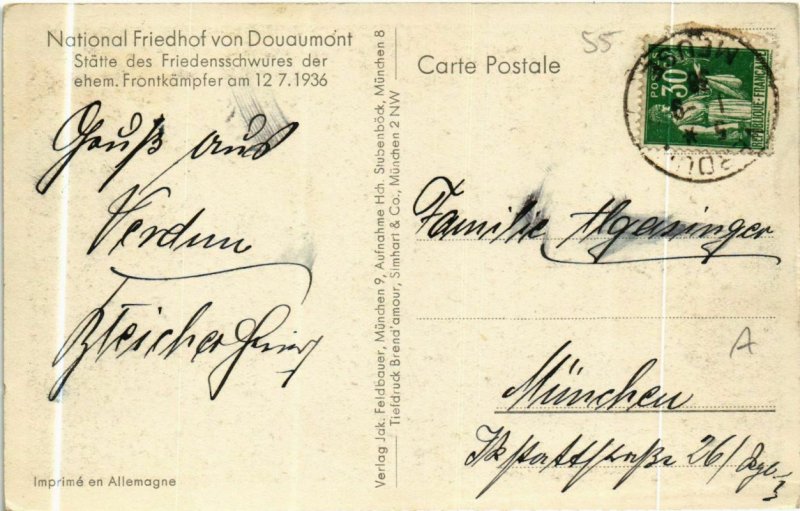 National Friedhof von Douaumont
Stätte des Friedensschwures der
ehem. Frontkämpfer am 12 7.1936
Gruß aus
Verdun
Carte Postale
55
30
POSTES
REPUBLIQUE FRANÇAISE
VERDUN
Verlag Jak. Feldbauer, München 9, Aufnahme Hch. Stubenböck, München 8
Tiefdruck Brend'amour, Simhart & Co., München 2 NW
Familie Algasinger
A
München
26/
Imprimé en Allemagne